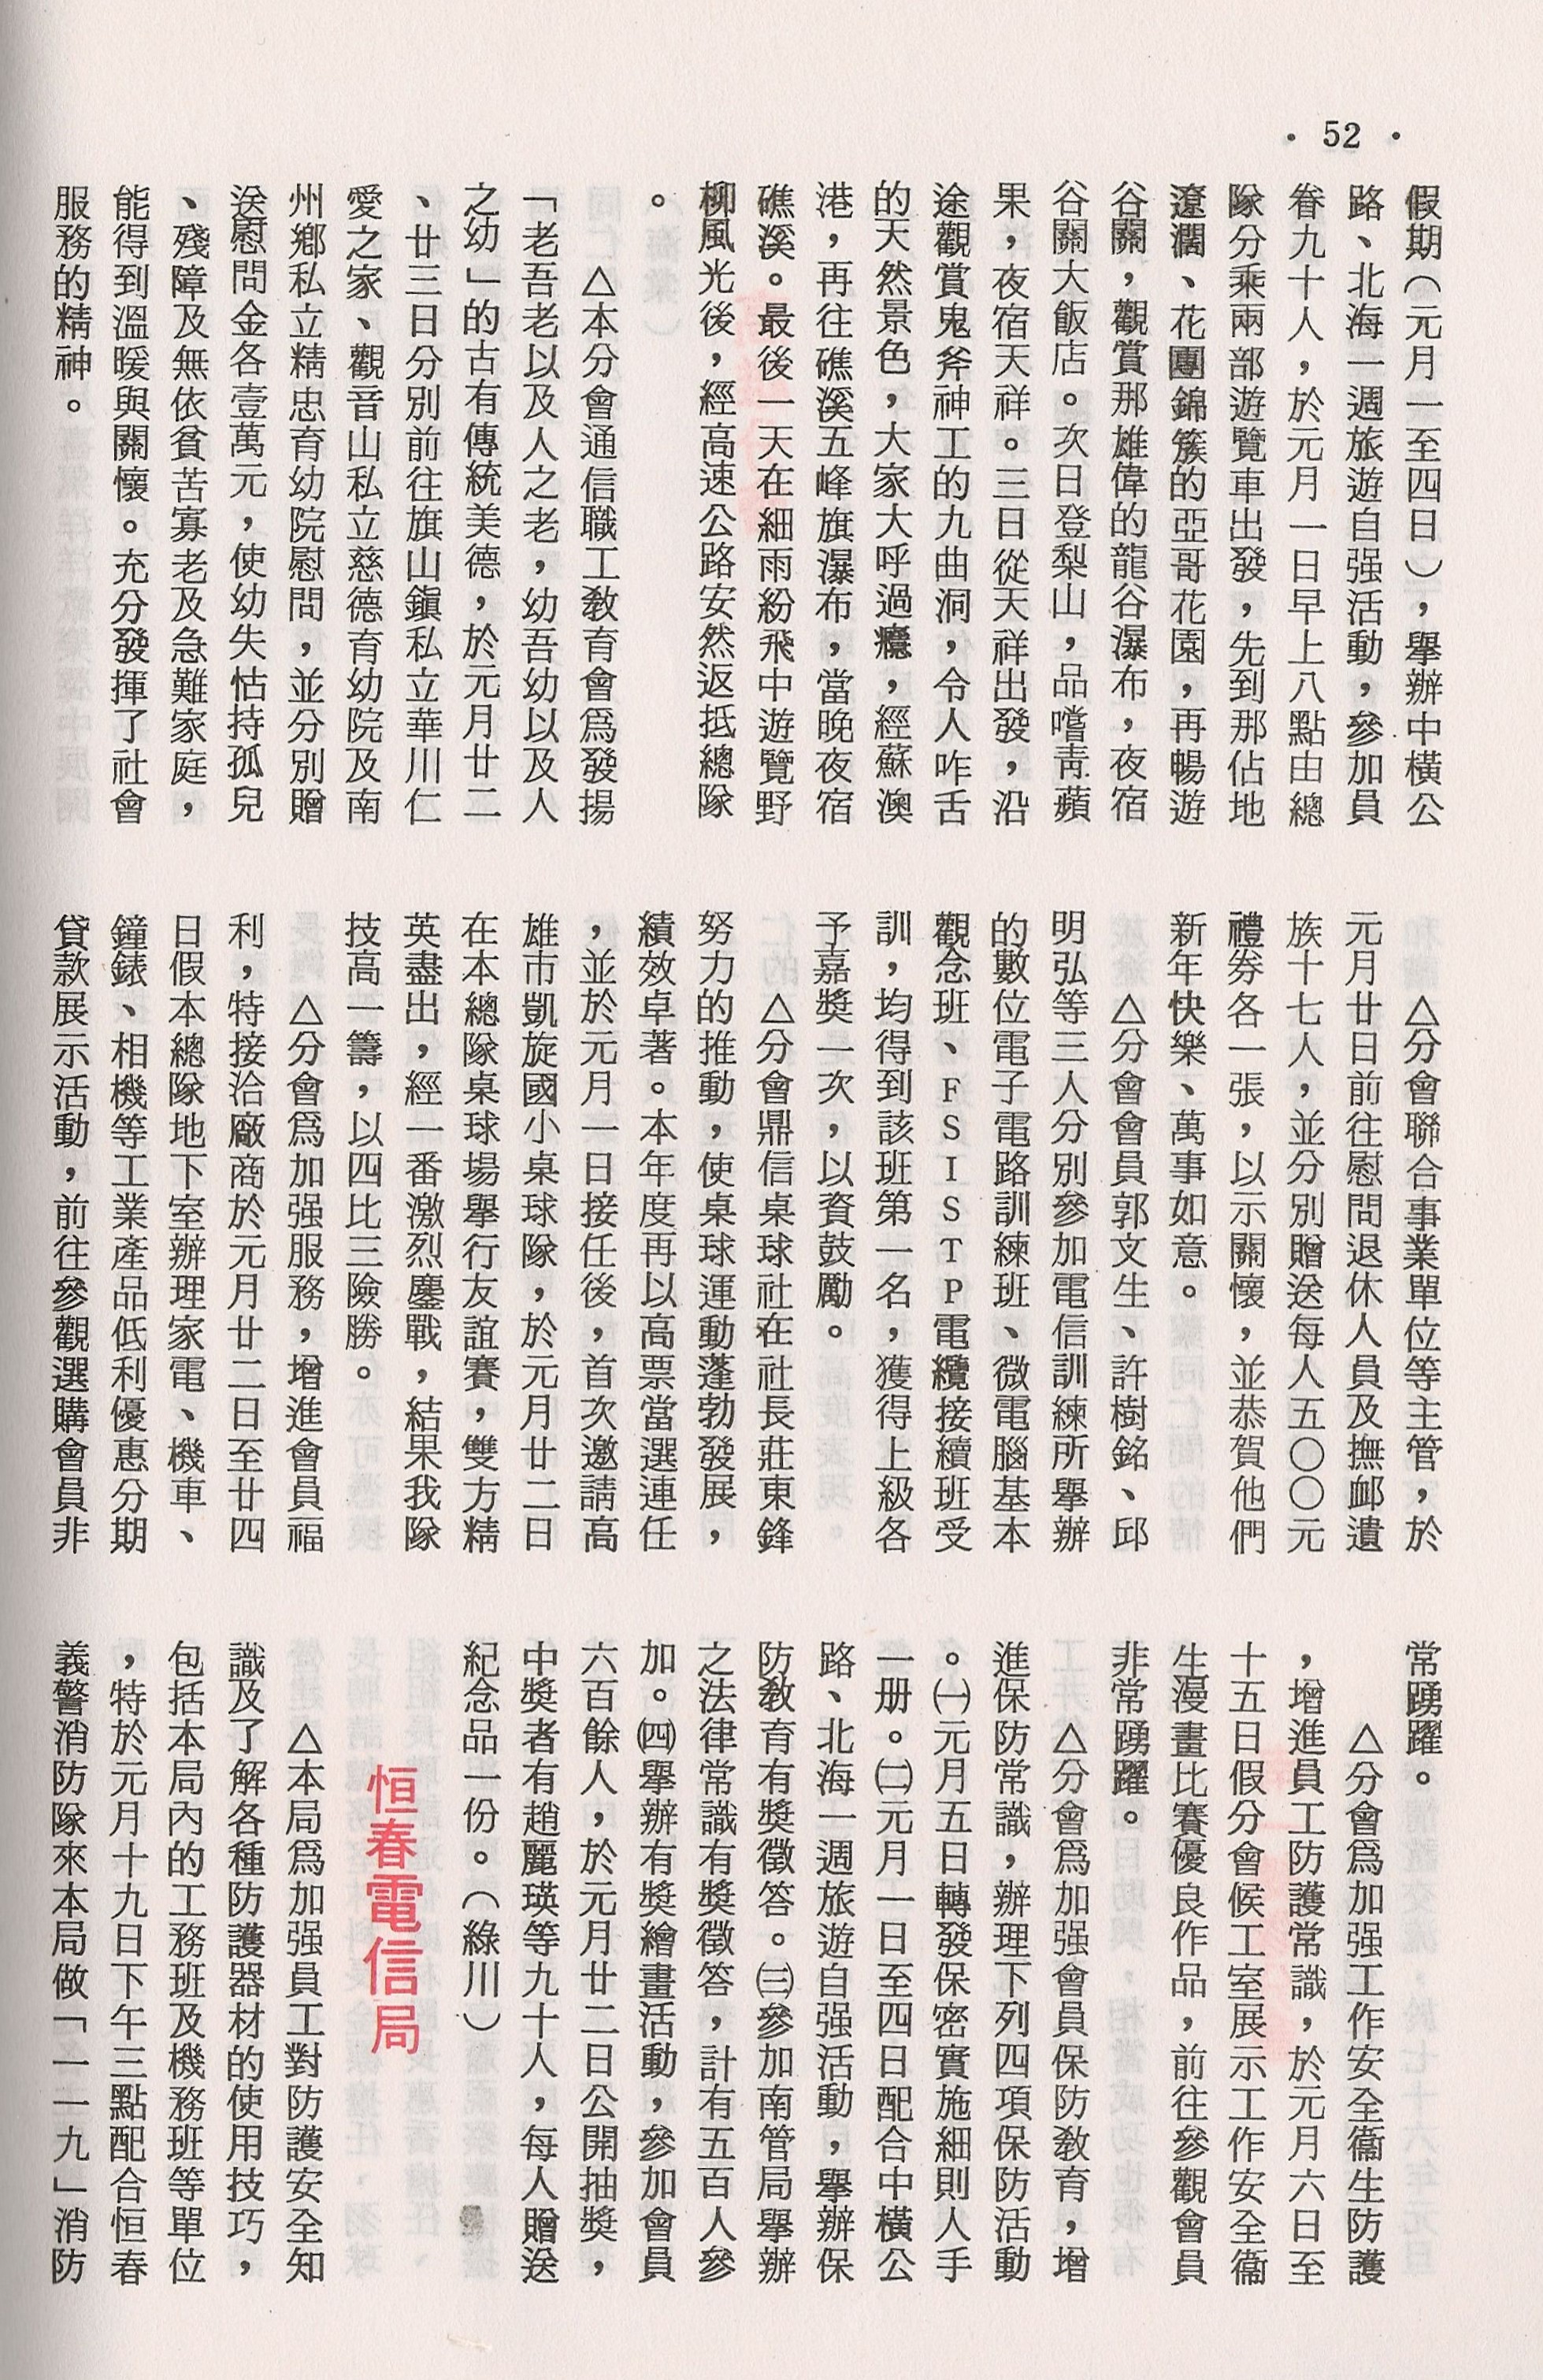 · 52 ·
假期(元月一至四日),舉辦中橫公
路、北海一週旅遊自强活動,參加員
眷九十人,於元月一日早上八點由總
隊分乘兩部遊覽車出發,先到那佔地
遼濶、花團錦簇的亞哥花園,再暢遊
谷關,觀賞那雄偉的龍谷瀑布,夜宿
谷關大飯店。次日登梨山,品嚐靑蘋
果,夜宿天祥。三日從天祥出發,沿
途觀賞鬼斧神工的九曲洞,令人咋舌
的天然景色,大家大呼過癮,經蘇澳
港,再往礁溪五峰旗瀑布,當晚夜宿
礁溪。最後一天在細雨紛飛中遊覽野
柳風光後,經高速公路安然返抵總隊
。
△本分會通信職工敎育會爲發揚
「老吾老以及人之老,幼吾幼以及人
之幼」的古有傳統美德,於元月廿二
、廿三日分別前往旗山鎭私立華川仁
愛之家、觀音山私立慈德育幼院及南
州鄉私立精忠育幼院慰問,並分別贈
送慰問金各壹萬元,使幼失怙持孤兒
、殘障及無依貧苦寡老及急難家庭,
能得到溫暖與關懷。充分發揮了社會
服務的精神。
△分會聯合事業單位等主管,於
元月廿日前往慰問退休人員及撫卹遺
族十七人,並分別贈送每人五〇〇元
禮券各一張,以示關懷,並恭賀他們
新年快樂、萬事如意。
△分會會員郭文生、許樹銘、邱
明弘等三人分別參加電信訓練所舉辦
的數位電子電路訓練班、微電腦基本
觀念班、FSISTP電纜接續班受
訓,均得到該班第一名,獲得上級各
予嘉獎一次,以資鼓勵。
△分會鼎信桌球社在社長莊東鋒
努力的推動,使桌球運動蓬勃發展,
績效卓著。本年度再以高票當選連任
,並於元月一日接任後,首次邀請高
雄市凱旋國小桌球隊,於元月廿二日
在本總隊桌球場舉行友誼賽,雙方精
英盡出,經一番激烈鏖戰,結果我隊
技高一籌,以四比三險勝。
△分會爲加强服務,增進會員福
利,特接洽廠商於元月廿二日至廿四
日假本總隊地下室辦理家電、機車、
鐘錶、相機等工業產品低利優惠分期
貸款展示活動,前往參觀選購會員非
常踴躍。
△分會爲加强工作安全衞生防護
,增進員工防護常識,於元月六日至
十五日假分會候工室展示工作安全衞
生漫畫比賽優良作品,前往參觀會員
非常踴躍。
△分會爲加强會員保防敎育,增
進保防常識,辦理下列四項保防活動
。㈠元月五日轉發保密實施細則人手
一册。㈡元月一日至四日配合中橫公
路、北海一週旅遊自强活動,舉辦保
防敎育有獎徵答。㈢參加南管局舉辦
之法律常識有獎徵答,計有五百人參
加。㈣舉辦有獎繪畫活動,參加會員
六百餘人,於元月廿二日公開抽獎,
中獎者有趙麗瑛等九十人,每人贈送
紀念品一份。(綠川)
恒春電信局
△本局爲加强員工對防護安全知
識及了解各種防護器材的使用技巧,
包括本局內的工務班及機務班等單位
,特於元月十九日下午三點配合恒春
義警消防隊來本局做「一一九」消防